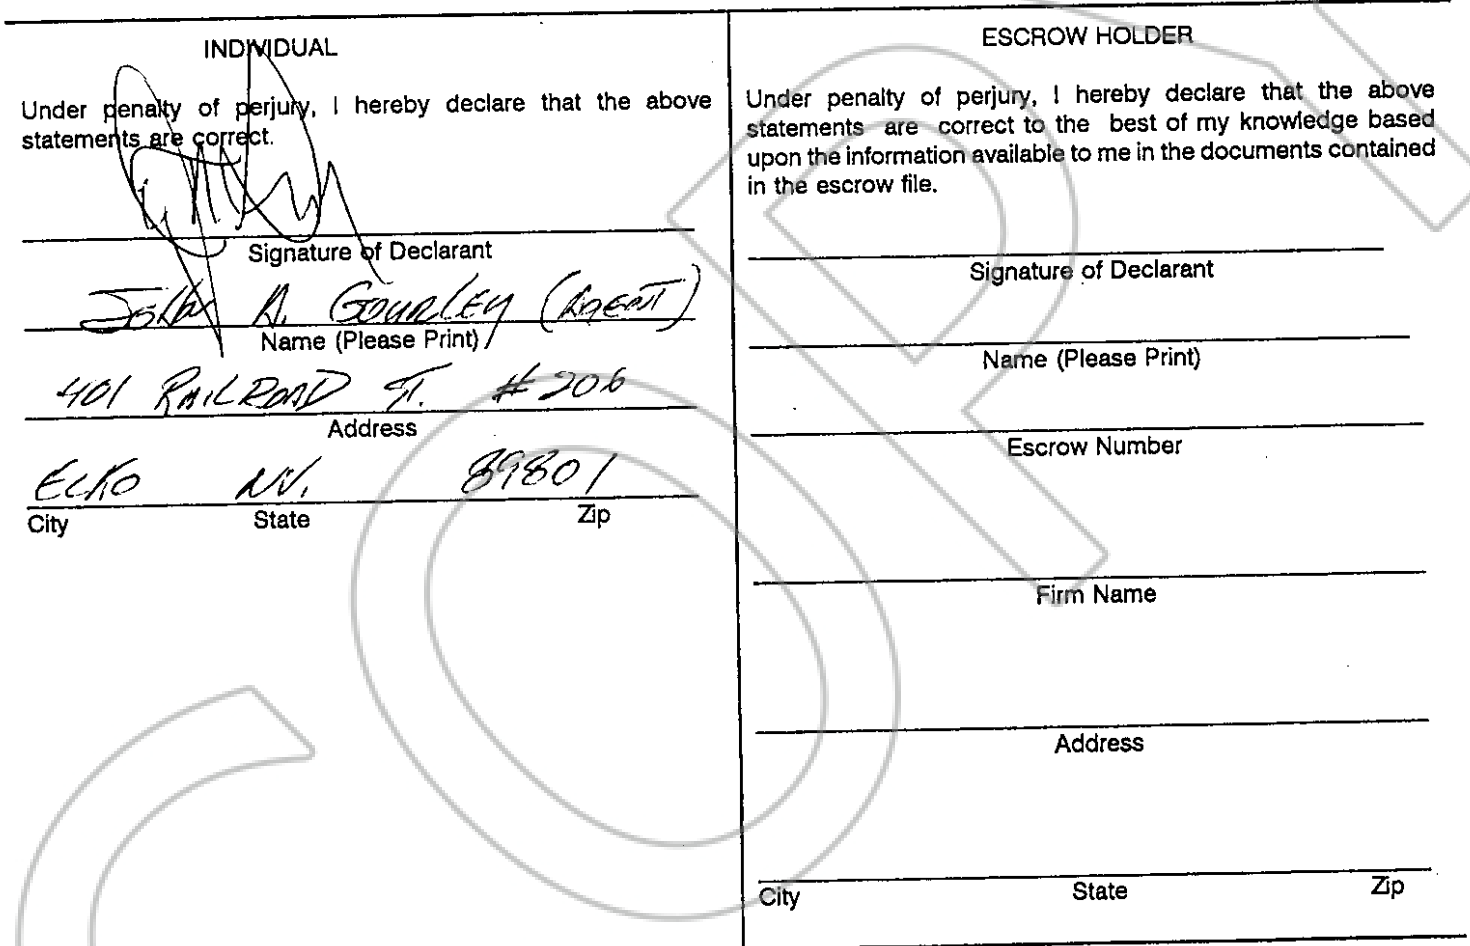 INDIVIDUAL
Under penalty of perjury, I hereby declare that the above
statements are correct.
Signature of Declarant
R. GOURLEY (AGENT)
Name (Please Print)
401 RAILROAD ST. #206
Address
ELKO NV. 89801
City State Zip
ESCROW HOLDER
Under penalty of perjury, I hereby declare that the above
statements are correct to the best of my knowledge based
upon the information available to me in the documents contained
in the escrow file.
Signature of Declarant
Name (Please Print)
Escrow Number
Firm Name
Address
City State Zip
COPY